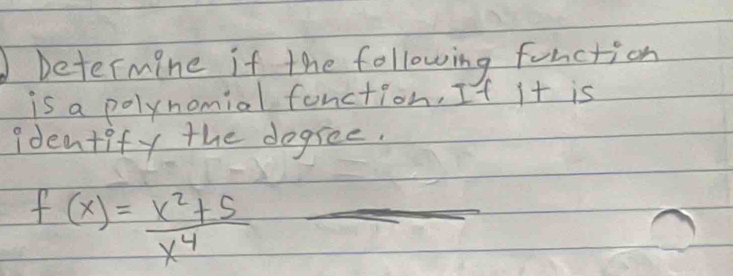 Determine if the following function
is a polynomial function. If it is
identify the degree.
f(x) = x²+5
x⁴